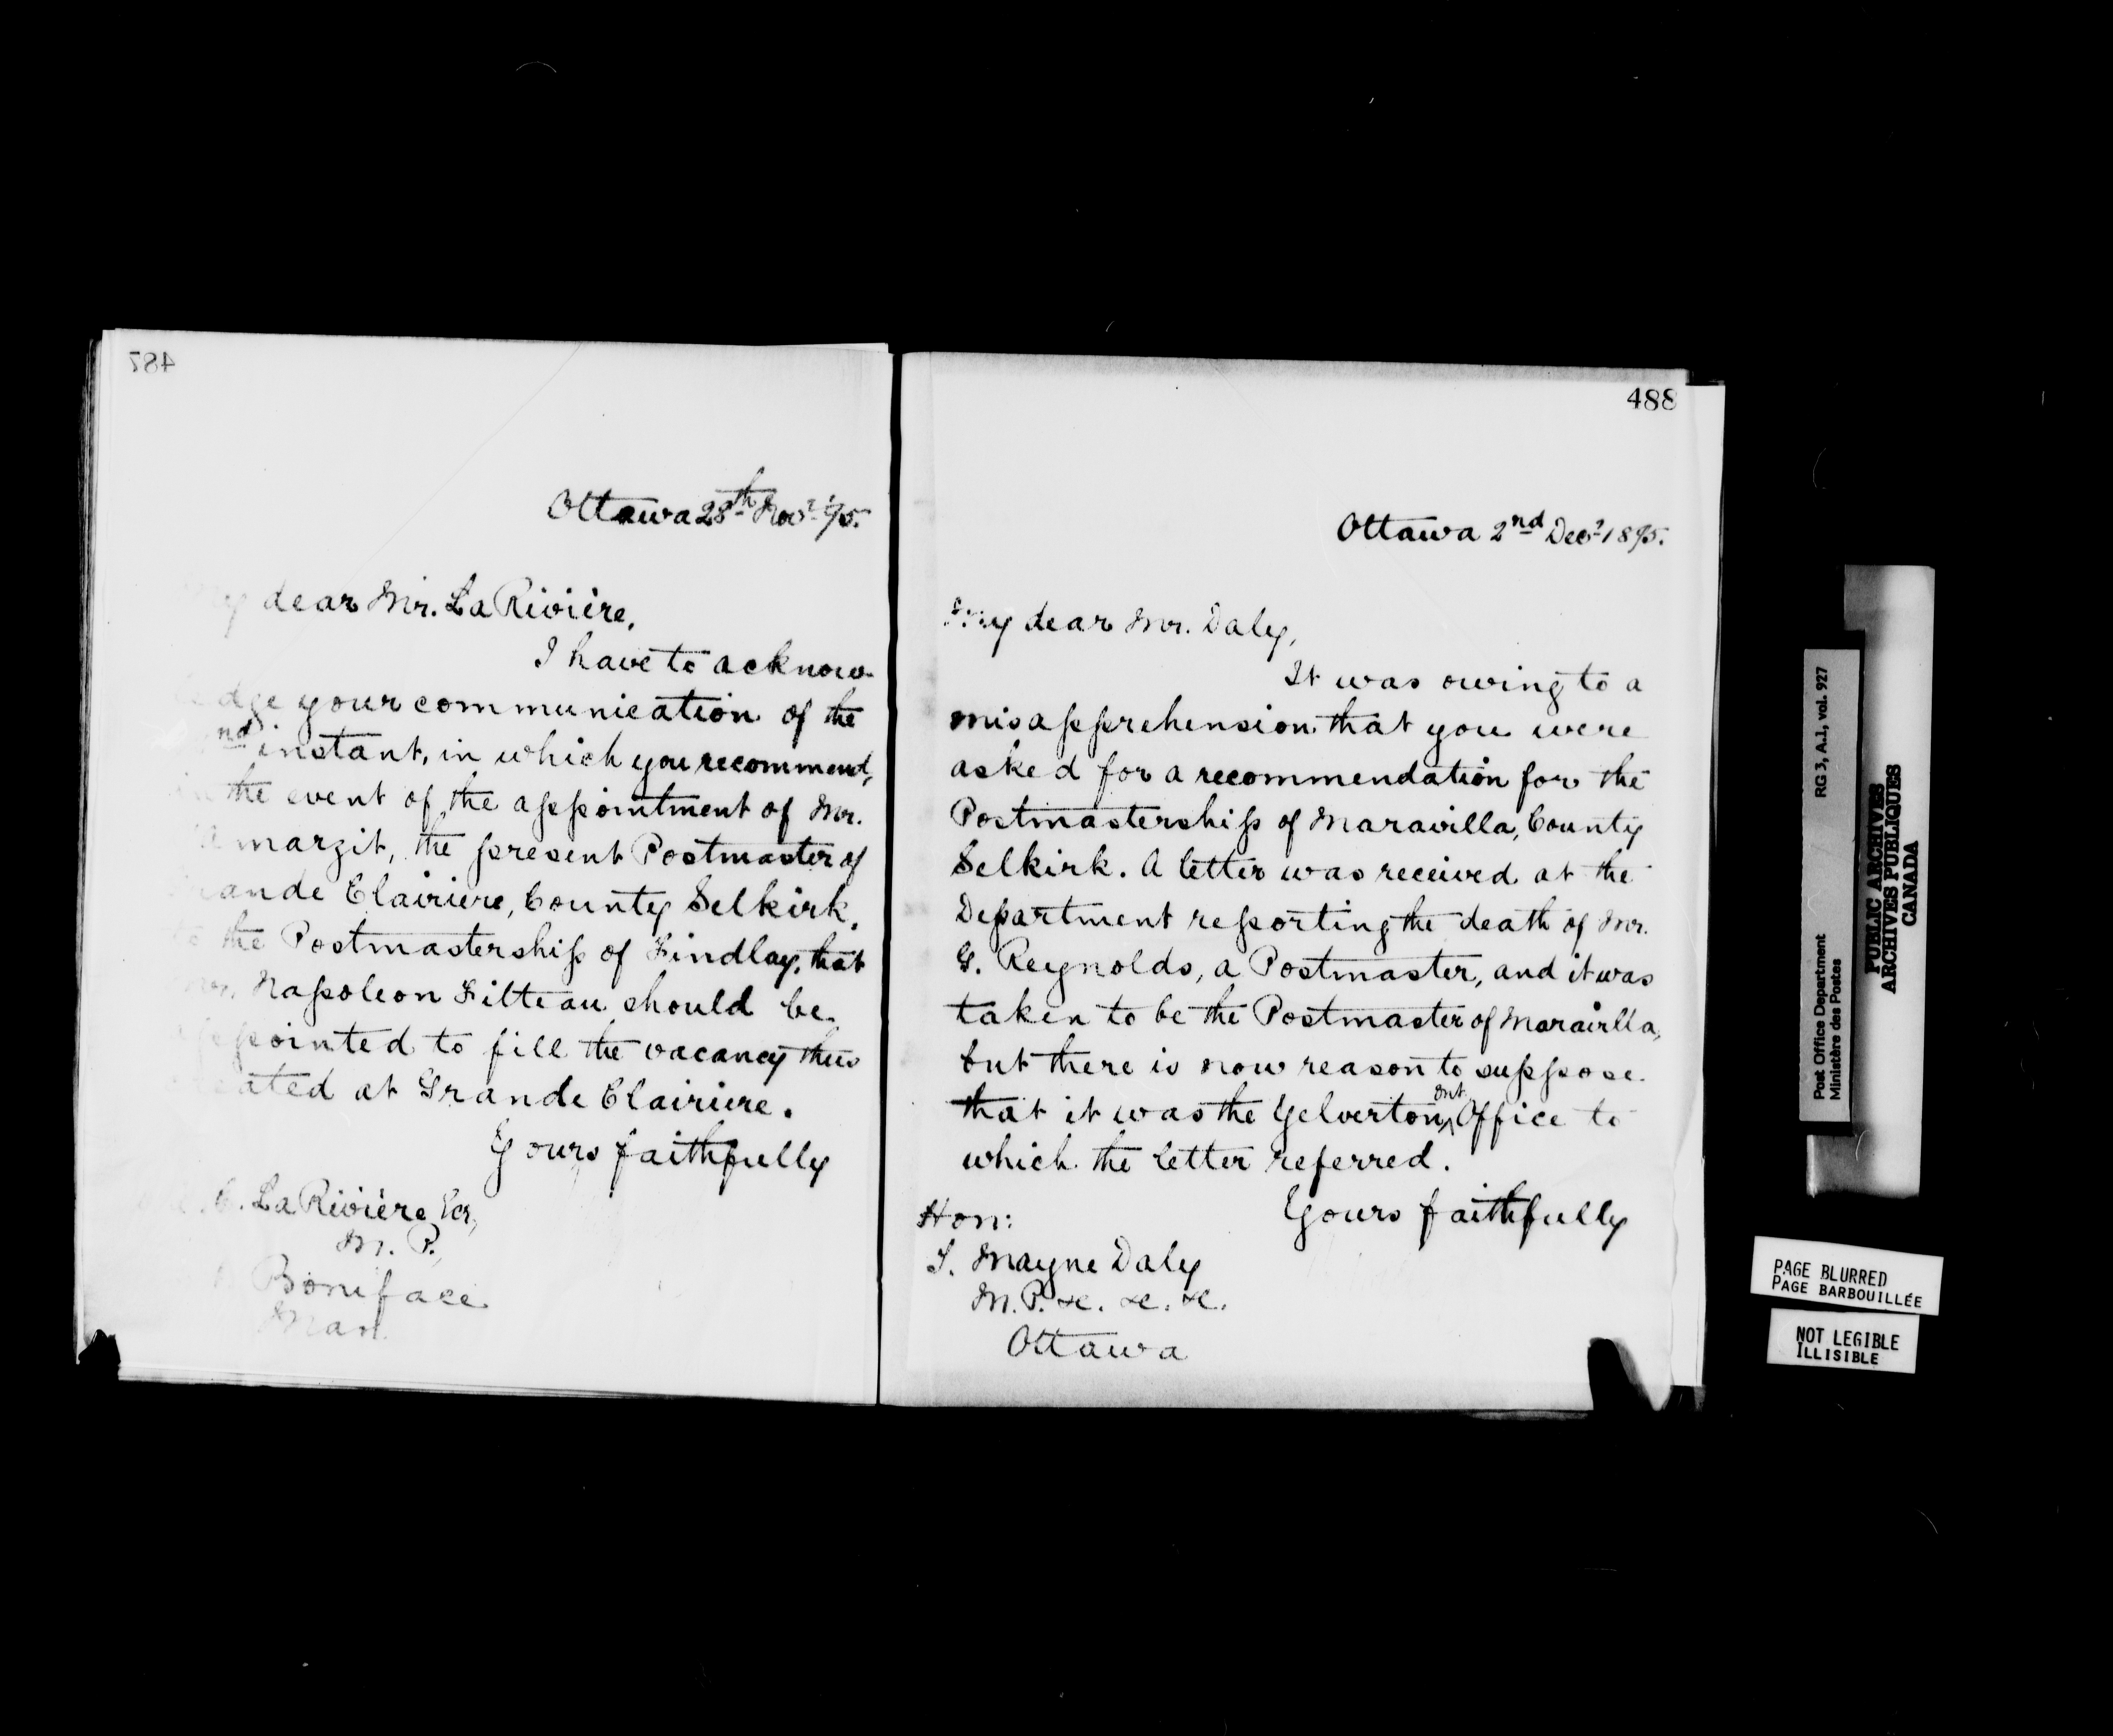 487
Ottawa 28th Novr '95.
My dear Mr. La Rivière,
I have to acknow-
ledge your communication of the
nd instant, in which you recommend,
in the event of the appointment of Mr.
margit, the present Postmaster of
Grande Clairiere, County Selkirk,
to the Postmastership of Findlay, that
Mr. Napoleon Filteau should be
appointed to fill the vacancy thus
created at Grande Clairiere.
Yours faithfully
C. La Rivière Esq,
M. P.,
Boniface
Man.
488
Ottawa 2nd Decr 1895.
My dear Mr. Daly,
It was owing to a
misapprehension that you were
asked for a recommendation for the
Postmastership of Maravilla, County
Selkirk. A letter was received at the
Department reporting the death of Mr.
G. Reynolds, a Postmaster, and it was
taken to be the Postmaster of Maravilla,
but there is now reason to suppose
that it was the Yelverton, Ont. Office to
which the letter referred.
Yours faithfully
Hon:
T. Mayne Daly
M.P. &c. &c. &c.
Ottawa
Post Office Department RG 3, A.1, vol. 927
Ministère des Postes
PUBLIC ARCHIVES
ARCHIVES PUBLIQUES
CANADA
PAGE BLURRED
PAGE BARBOUILLÉE
NOT LEGIBLE
ILLISIBLE